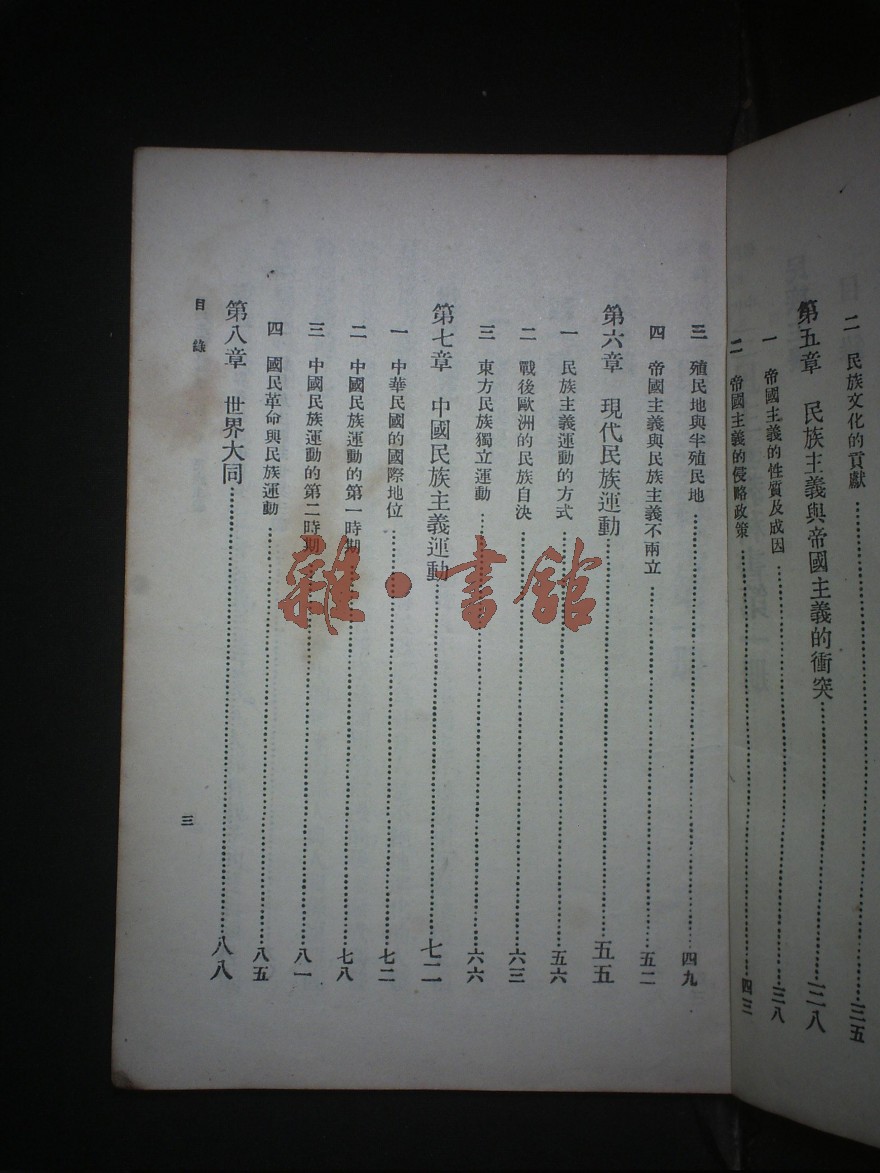 二 民族文化的貢獻……三五
第五章 民族主義與帝國主義的衝突……三八
一 帝國主義的性質及成因……三八
二 帝國主義的侵略政策……四三
三 殖民地與半殖民地……四九
四 帝國主義與民族主義不兩立……五二
第六章 現代民族運動……五五
一 民族主義運動的方式……五六
二 戰後歐洲的民族自決……六三
三 東方民族獨立運動……六六
第七章 中國民族主義運動……七二
一 中華民國的國際地位……七二
二 中國民族運動的第一時期……七八
三 中國民族運動的第二時期……八一
四 國民革命與民族運動……八五
第八章 世界大同……八八
目錄
三
雜·書館